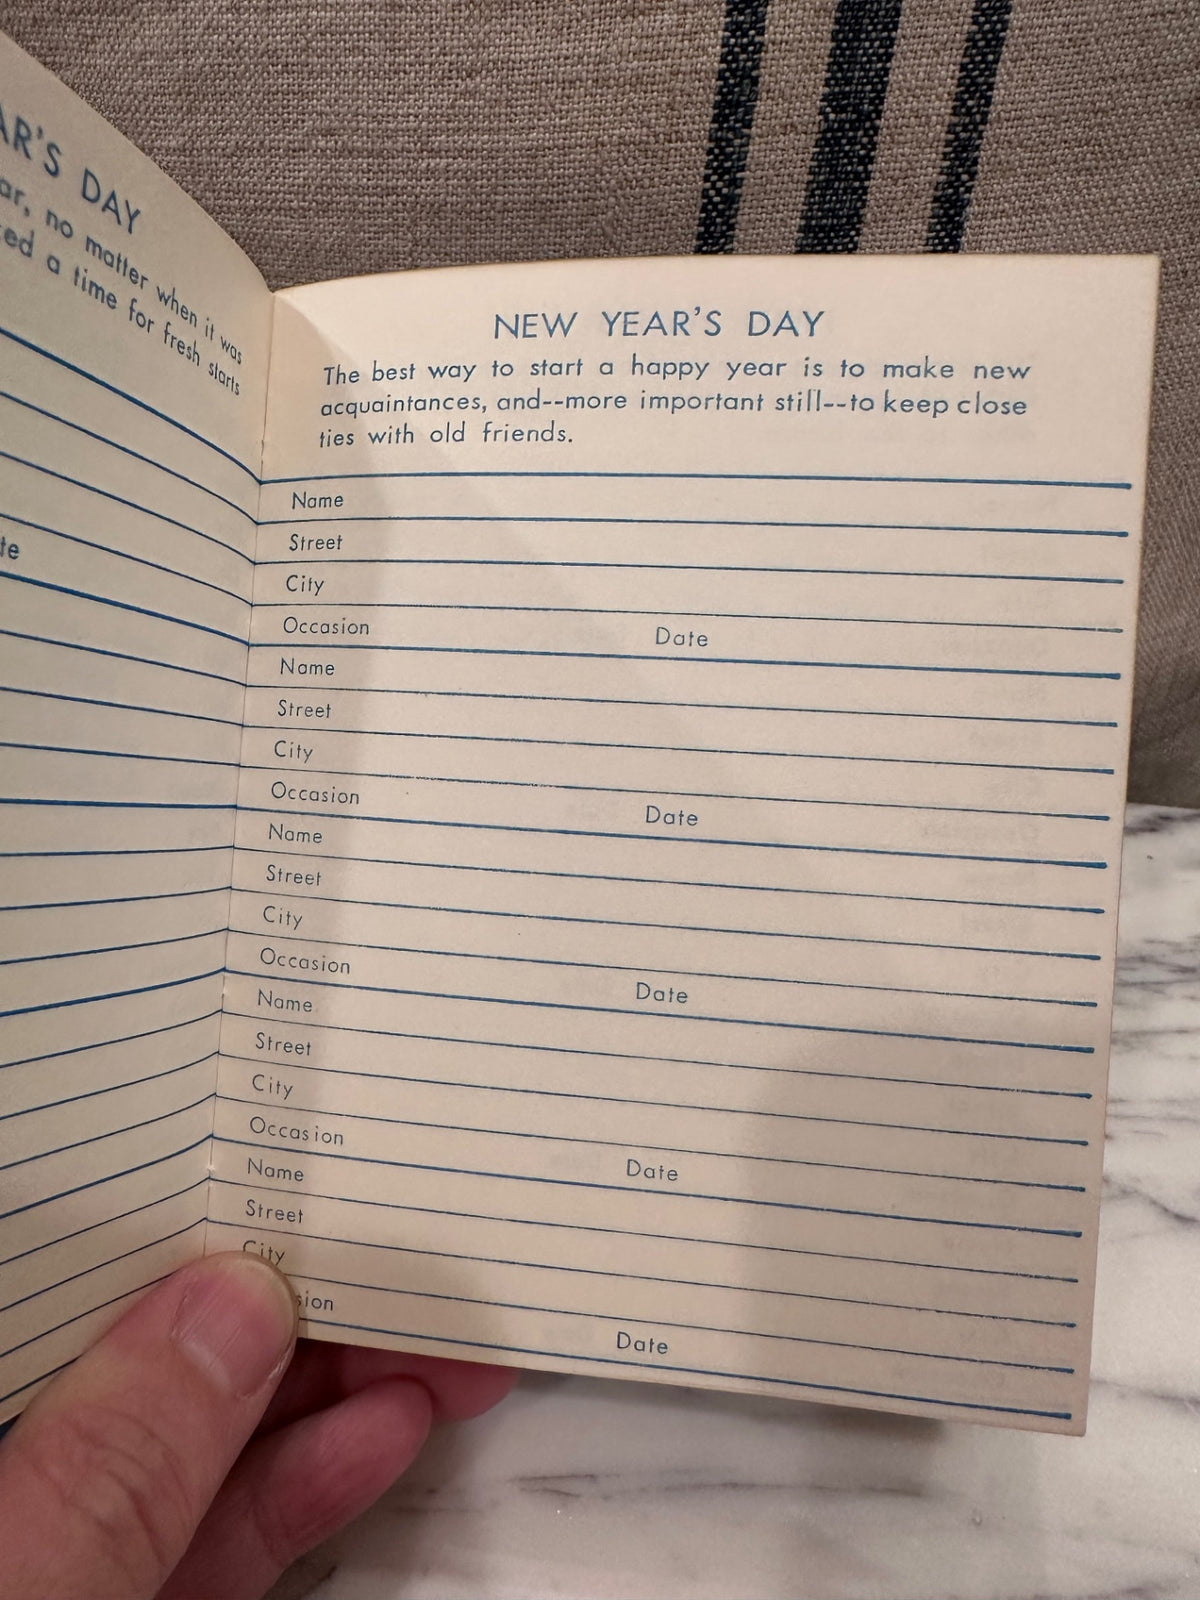 DAY
no matter when it was
a time for fresh starts
NEW YEAR'S DAY
The best way to start a happy year is to make new
acquaintances, and--more important still--to keep close
ties with old friends.
Name
Street
City
Occasion Date
Name
Street
City
Occasion Date
Name
Street
City
Occasion Date
Name
Street
City
Occasion Date
Name
Street
City
Date